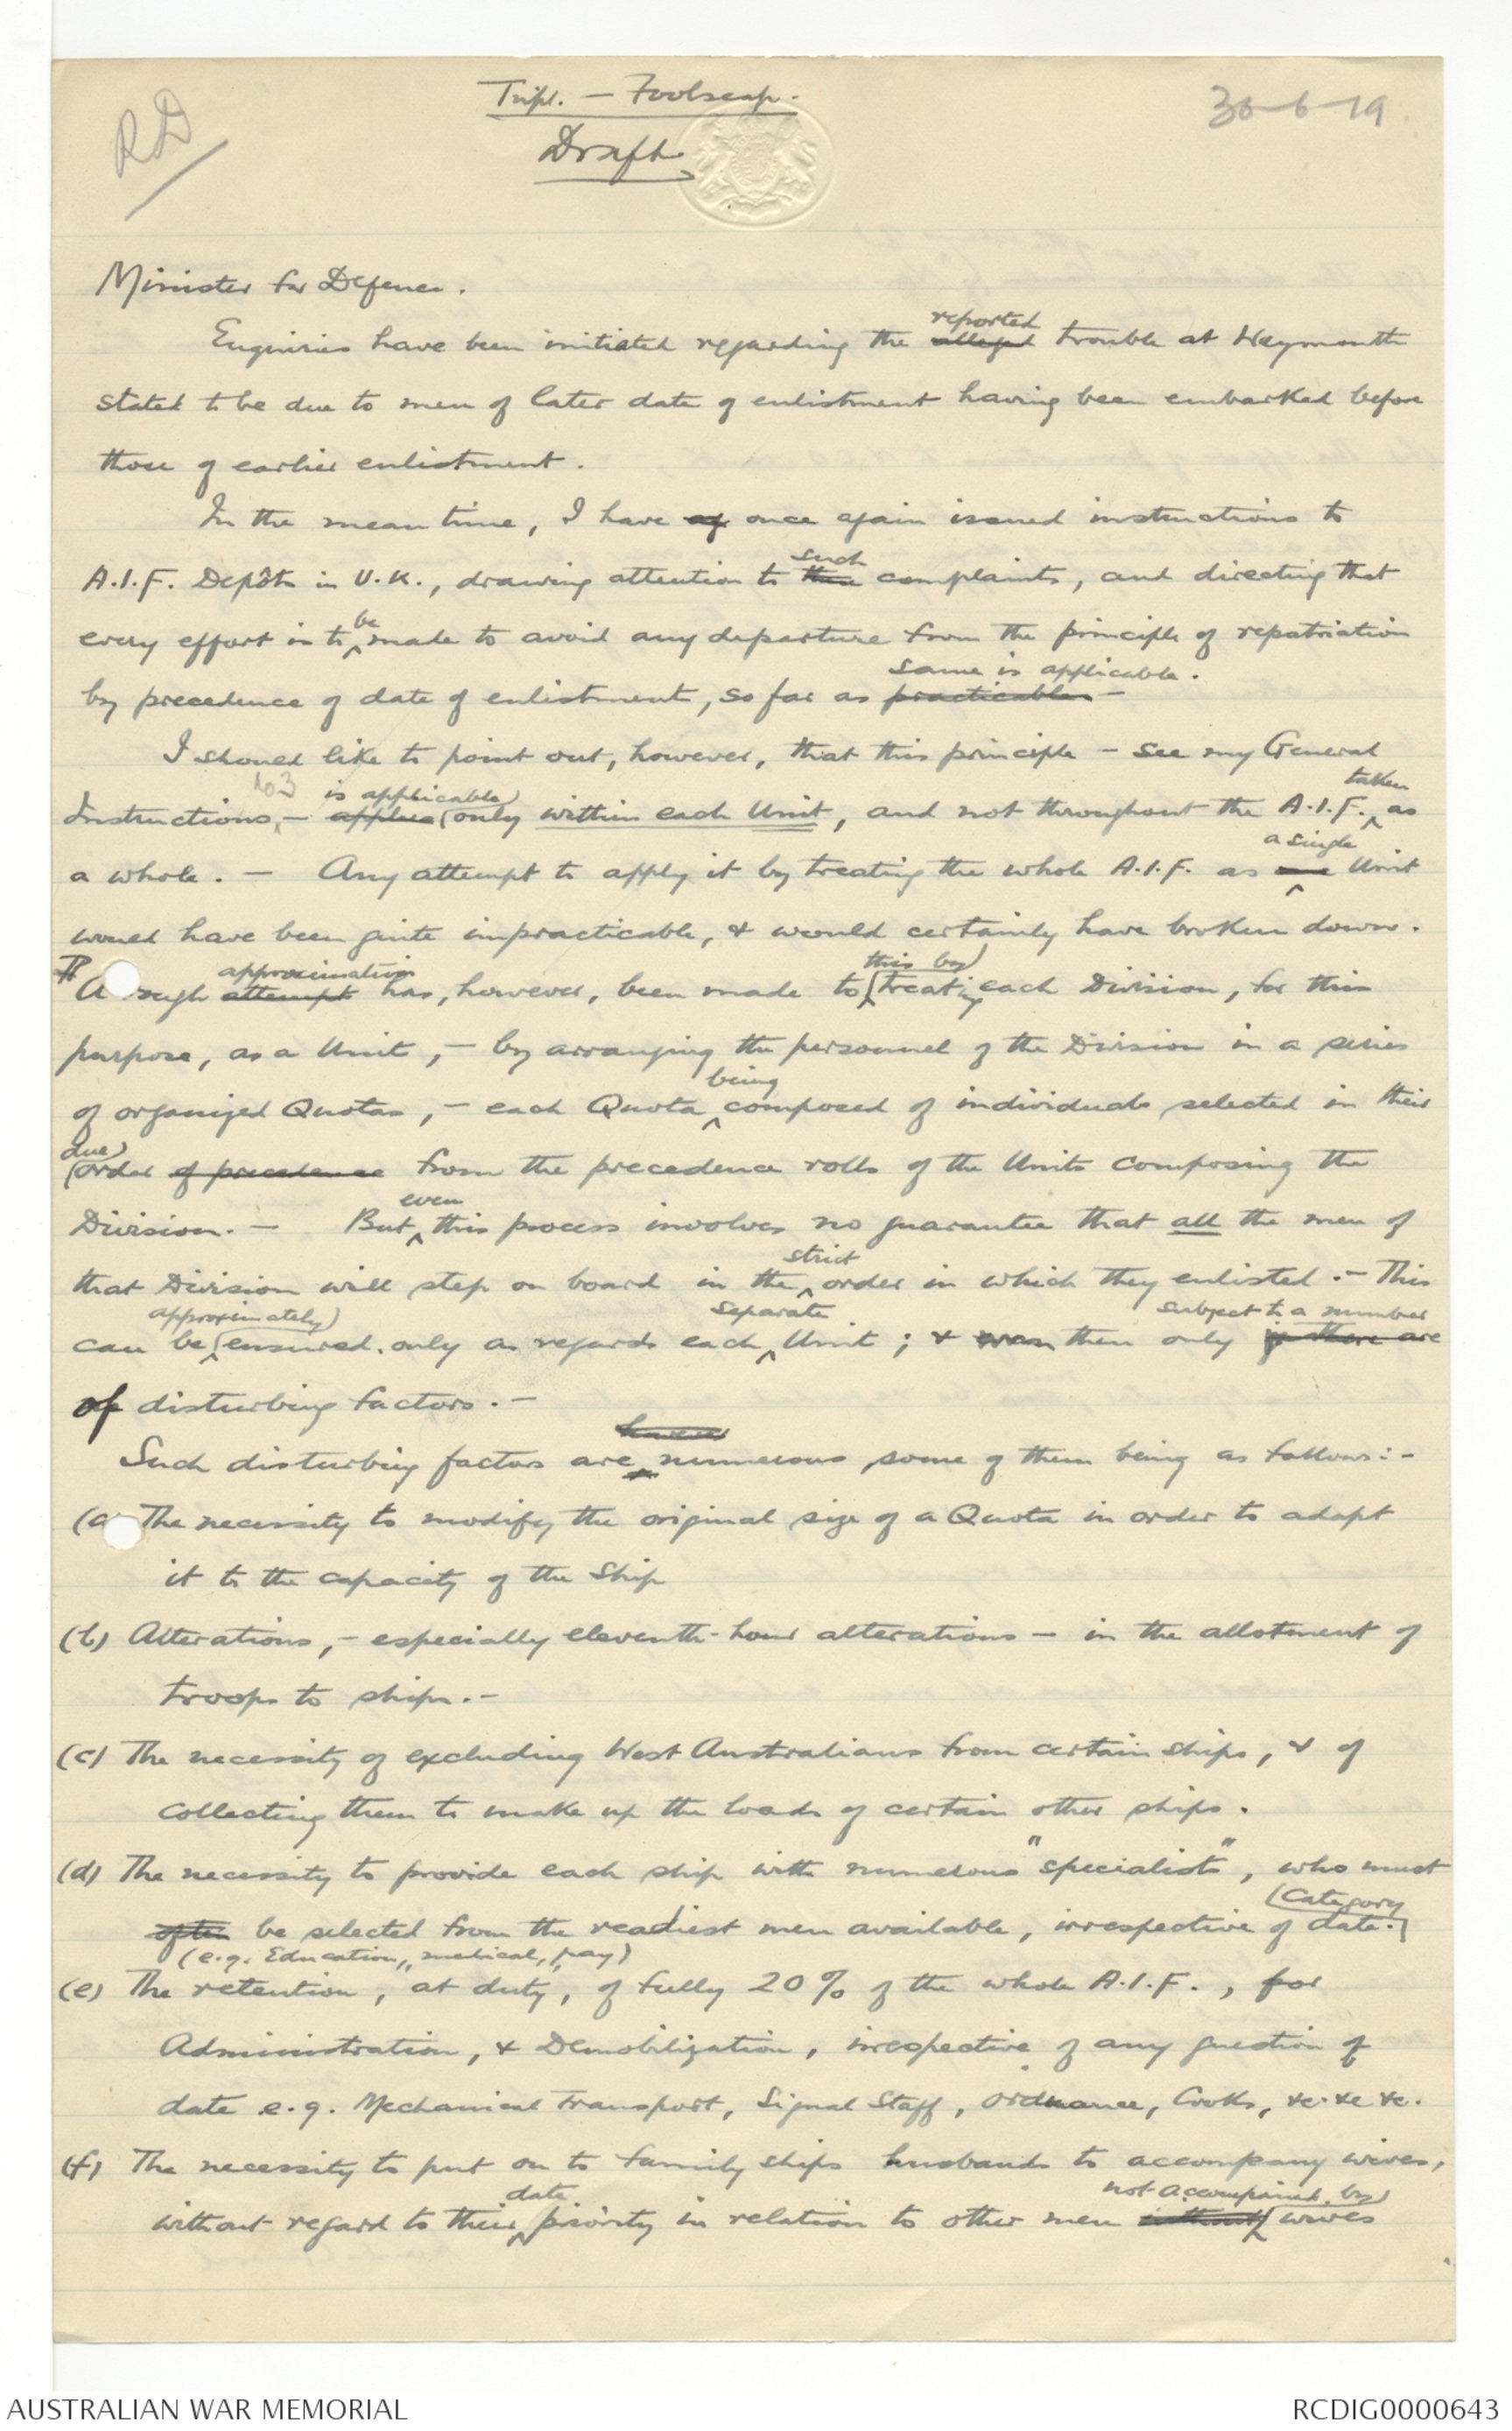 RD
Tripl. — Foolscap.
Draft
30-6-19
Minister for Defence.
Enquiries have been initiated regarding the alleged reported trouble at Weymouth
stated to be due to men of later date of enlistment having been embarked before
those of earlier enlistment.
In the mean time, I have ag once again issued instructions to
A.I.F. Depôts in U.K., drawing attention to such complaints, and directing that
every effort is to be made to avoid any departure from the principle of repatriation
by precedence of date of enlistment, so far as practicable same is applicable. —
I should like to point out, however, that this principle — see my General
Instructions, No 3 — applies is applicable only within each Unit, and not throughout the A.I.F. taken as
a whole. — Any attempt to apply it by treating the whole A.I.F. as one a single Unit
would have been quite impracticable, & would certainly have broken down.
A rough attempt approximation has, however, been made to this by treating each Division, for this
purpose, as a Unit, — by arranging the personnel of the Division in a series
of organized Quotas, — each Quota being composed of individuals selected in their
due order of precedence from the precedence rolls of the Units composing the
Division. — But even this process involves no guarantee that all the men of
that Division will step on board in the strict order in which they enlisted. — This
can be approximately ensured only as regards each separate Unit; & even then only if there are subject to a number
of disturbing factors. —
Such disturbing factors are however numerous, some of them being as follows:-
(a) The necessity to modify the original size of a Quota in order to adapt
it to the capacity of the Ship
(b) Alterations, — especially eleventh-hour alterations — in the allotment of
troops to ships. —
(c) The necessity of excluding West Australians from certain ships, & of
collecting them to make up the loads of certain other ships.
(d) The necessity to provide each ship with numerous "specialists", who must
often be selected from the readiest men available, irrespective of date Category.
(e.g. Education, medical, pay)
(e) The retention, at duty, of fully 20% of the whole A.I.F., for
Administration, & Demobilization, irrespective of any question of
date e.g. Mechanical Transport, Signal Staff, Ordnance, Cooks, &c. &c &c.
(f) The necessity to put on to family ships husbands to accompany wives,
without regard to their date priority in relation to other men without not accompanied by wives
AUSTRALIAN WAR MEMORIAL
RCDIG0000643